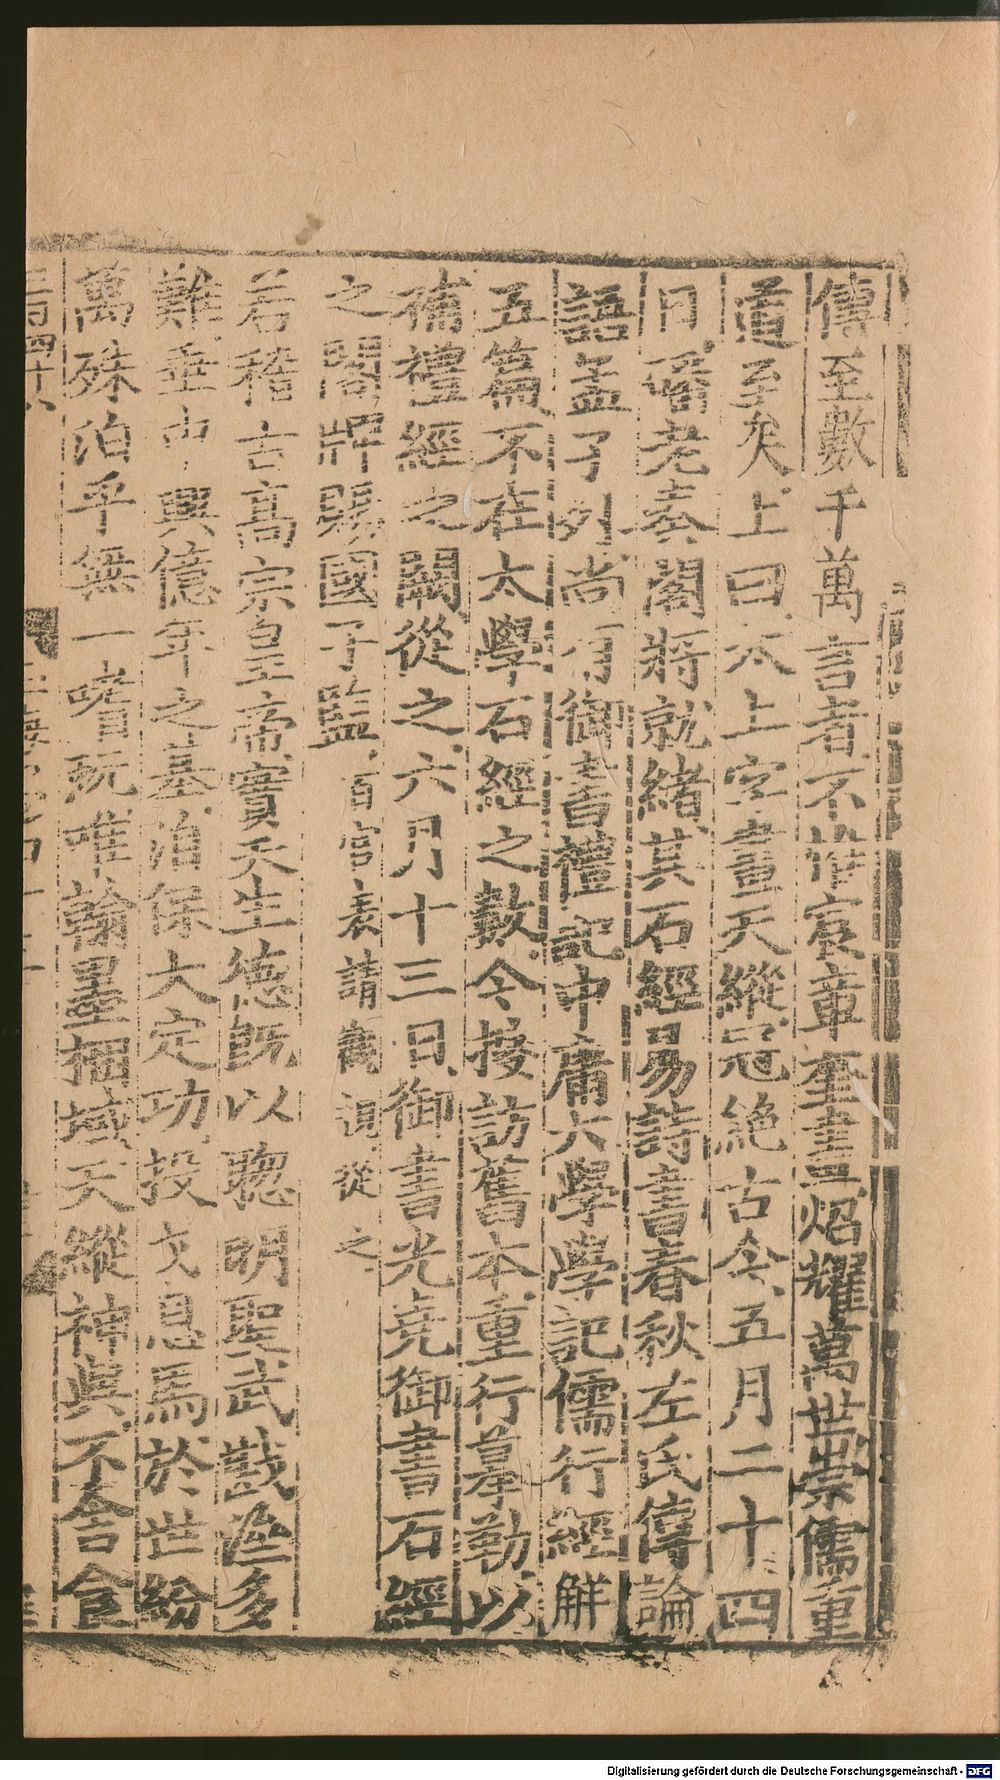 傳至數千萬言者不惟宸章奎畫焜耀萬世崇儒重
道至矣上曰太上字畫天縱冠絕古今五月二十四
日磻老奏閣將就緒其石經易詩書春秋左氏傳論
語孟子外尚有御書禮記中庸大學學記儒行經解
五篇不在太學石經之數今搜訪舊本重行摹勒以
補禮經之闕從之六月十三日御書光堯御書石經
之閣牌賜國子監百官表請觀從之
若稽古高宗皇帝實天生德既以聰明聖武戡濟多
難垂中興億年之基洎保大定功投戈息馬於世紛
萬殊泊乎無一嗜玩唯翰墨捆域天縱神與不舍食
三百四十八
Digitalisierung gefördert durch die Deutsche Forschungsgemeinschaft - DFG